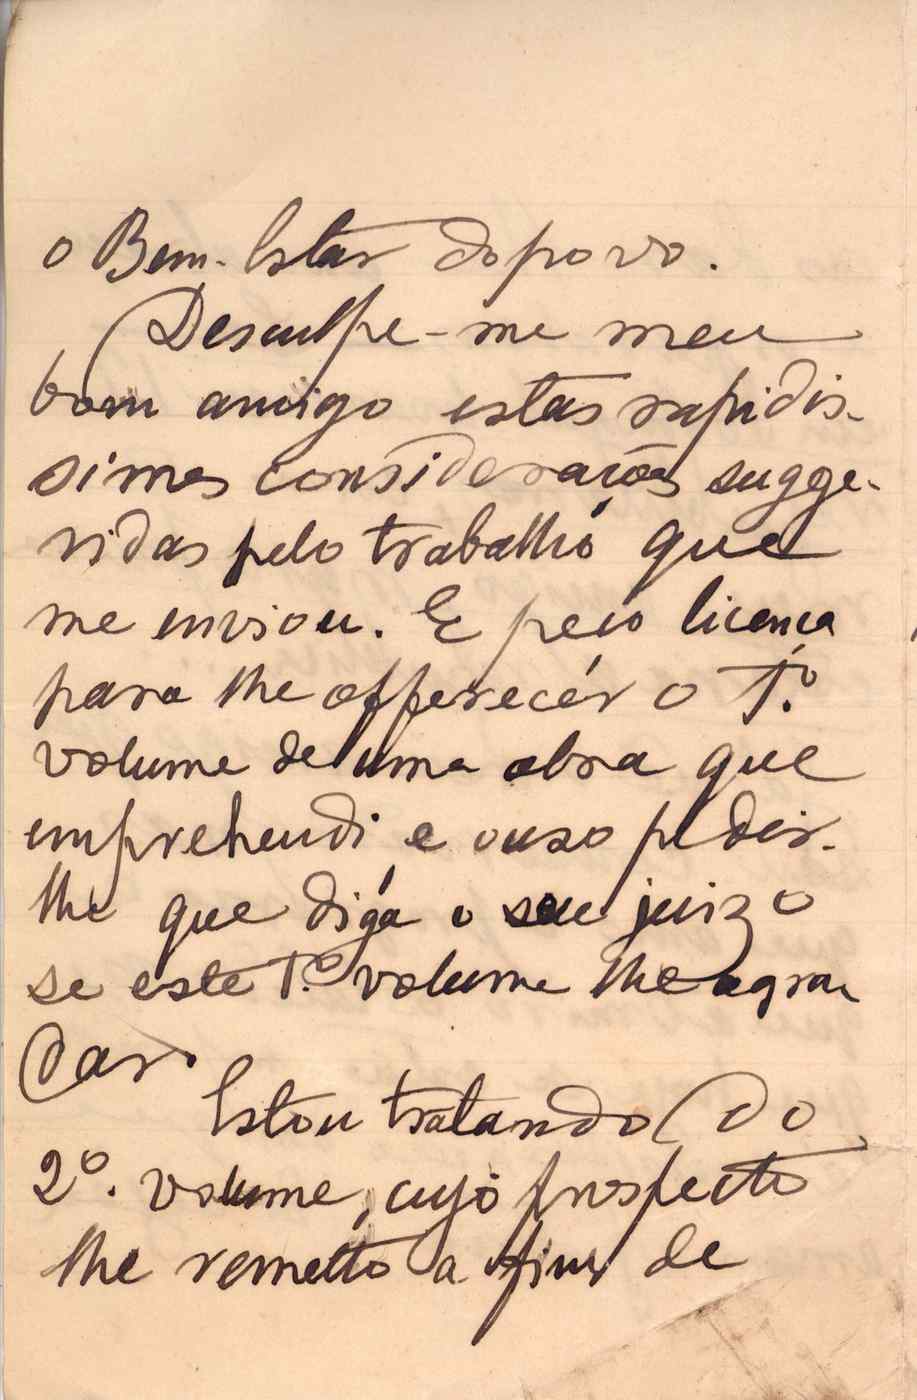 o Bem-Estar do povo.
Desculpe-me meu
bom amigo estas rapidis-
simas considerações sugge-
ridas pelo trabalho que
me enviou. E peço licença
para lhe offerecer o 1.º
volume de uma obra que
emprehendi e ouso pedir-
lhe que diga o seu juizo
se este 1.º volume lhe agra-
dar.
Estou tratando do
2º. volume, cujo prospecto
lhe remetto a fim de